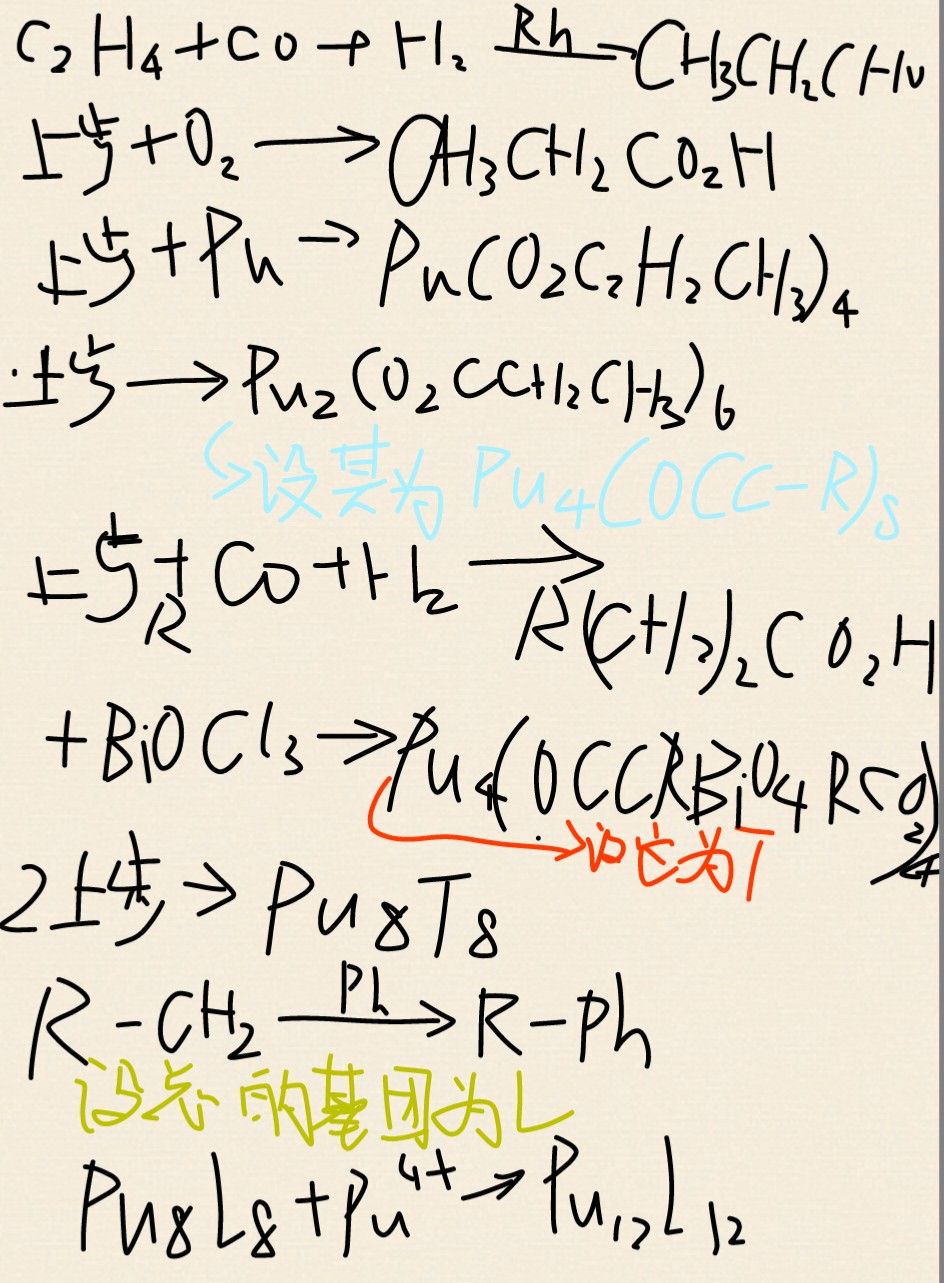 C₂H₄+CO+H₂ —Rh→ CH₃CH₂CHO
上步+O₂ → CH₃CH₂CO₂H
上步+Pu → Pu(CO₂C₂H₂CH₃)₄
上步 → Pu₂(O₂CCH₂CH₃)₆
↳设其为 Pu₄(OCC-R)₈
上步+CO+H₂ →
R R(CH₂)₂CO₂H
+BiOCl₃ → Pu₄(OCCRBiO₄RCO₂)₄
→设它为T
2上步 → Pu₈T₈
R-CH₂ —Ph→ R-Ph
设总的基团为L
Pu₈L₈+Pu⁴⁺ → Pu₁₂L₁₂